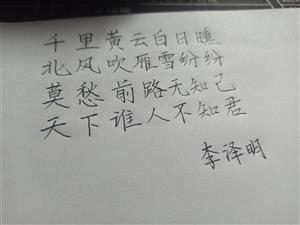 千里黄云白日曛
北风吹雁雪纷纷
莫愁前路无知己
天下谁人不知君
李泽明